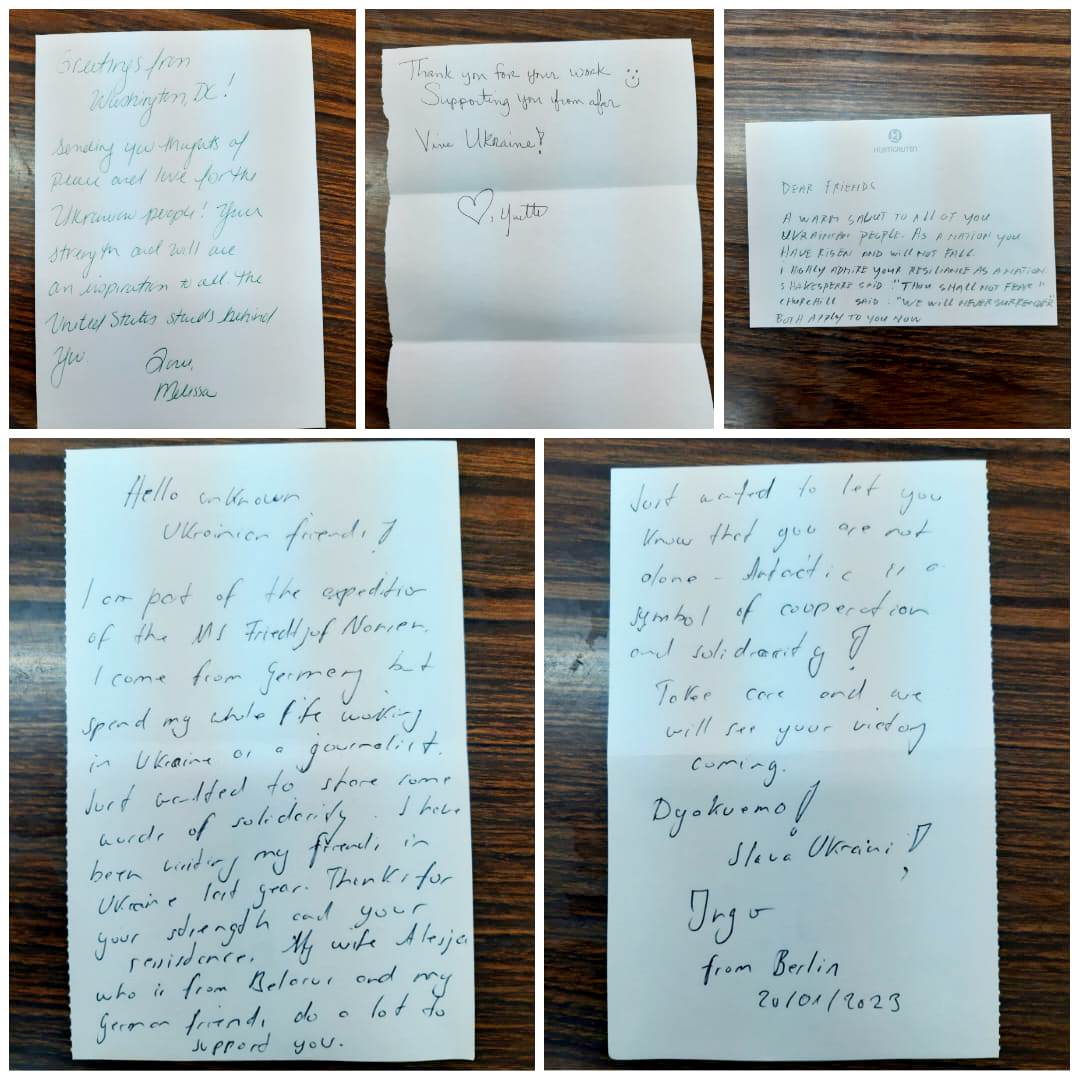 Greetings from
Washington, DC!
Sending you thoughts of
peace and love for the
Ukrainian people! Your
strength and will are
an inspiration to all. The
United States stands behind
you.
Love,
Melissa
Thank you for your work
Supporting you from afar
Viva Ukraine!
Yvette
HURTIGRUTEN
DEAR FRIENDS
A WARM SALUT TO ALL OF YOU
UKRAINIAN PEOPLE. AS A NATION YOU
HAVE RISEN AND WILL NOT FALL.
I HIGHLY ADMIRE YOUR RESILIANCE AS A NATION.
SHAKESPEARE SAID: "THOU SHALL NOT FEAR"
CHURCHILL SAID: "WE WILL NEVER SURRENDER"
BOTH APPLY TO YOU NOW
Hello unknown
Ukrainian friends!
I am part of the expedition
of the MS Friedtjof Nansen.
I come from Germany but
spend my whole life working
in Ukraine as a journalist.
Just wanted to share some
words of solidarity. I have
been visiting my friends in
Ukraine last year. Thanks for
your strength and your
resistance. My wife Alesja
who is from Belarus and my
German friends do a lot to
support you.
Just wanted to let you
know that you are not
alone - Antarctic is a
symbol of cooperation
and solidarity!
Take care and we
will see your victory
coming.
Dyakuemo!
Slava Ukraini!
Ingo
from Berlin
20/01/2023